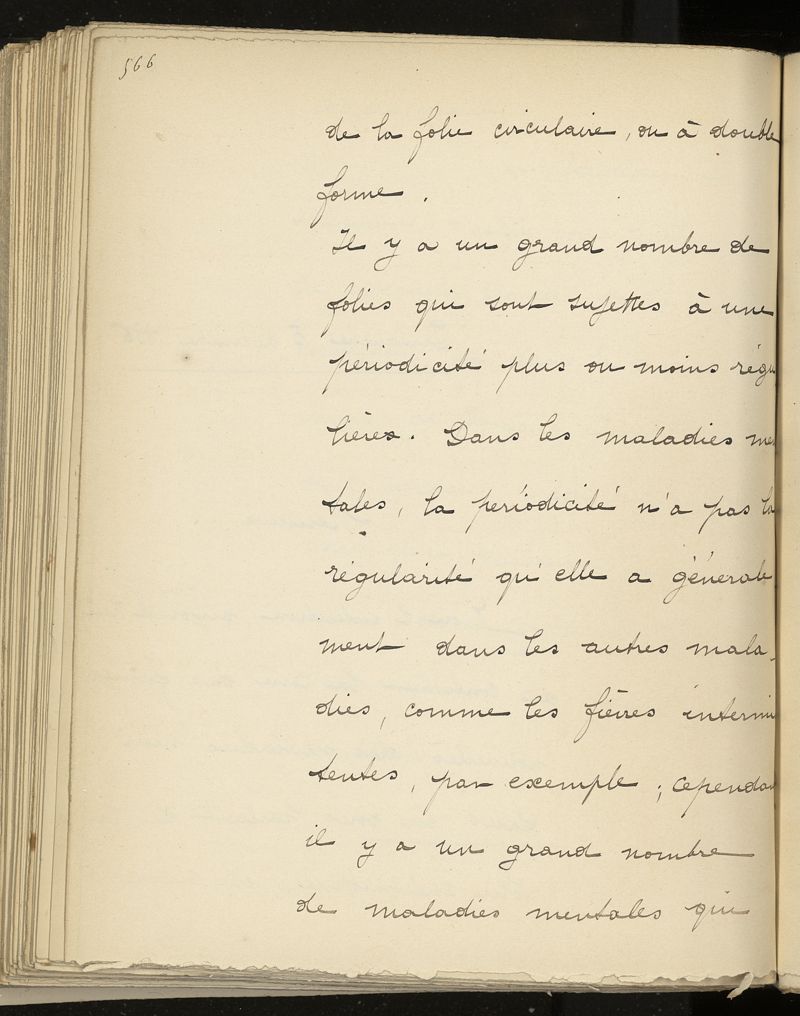 566
de la folie circulaire, ou à double
forme.
Il y a un grand nombre de
folies qui sont sujettes à une
périodicité plus ou moins régu
lières. Dans les maladies men
tales, la périodicité n'a pas la
régularité qu'elle a générale
ment dans les autres mala-
dies, comme les fièvres intermi
tentes, par exemple ; cependan
il y a un grand nombre
de maladies mentales qui